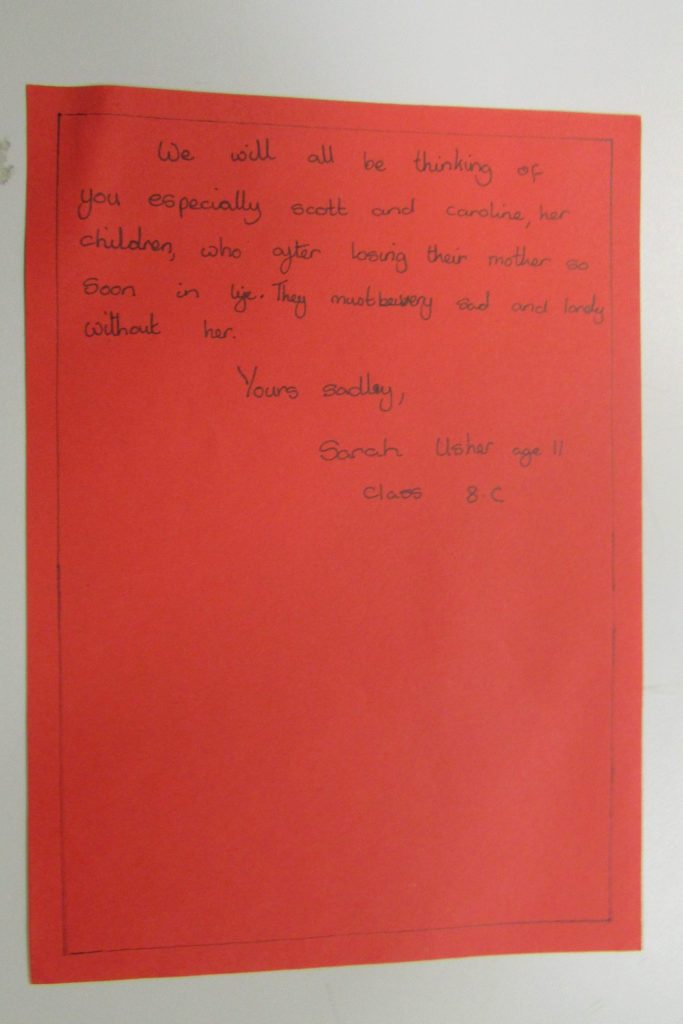 We will all be thinking of
you especially scott and caroline, her
children, who after losing their mother so
soon in life. They must be very sad and lonely
without her.
Yours sadley,
Sarah Usher age 11
class 8.C